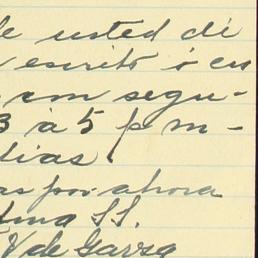 le usted dé
escrito ó en
un segu-
3 à 5 p m-
dias.
as por ahora
tma SS.
V de Garza